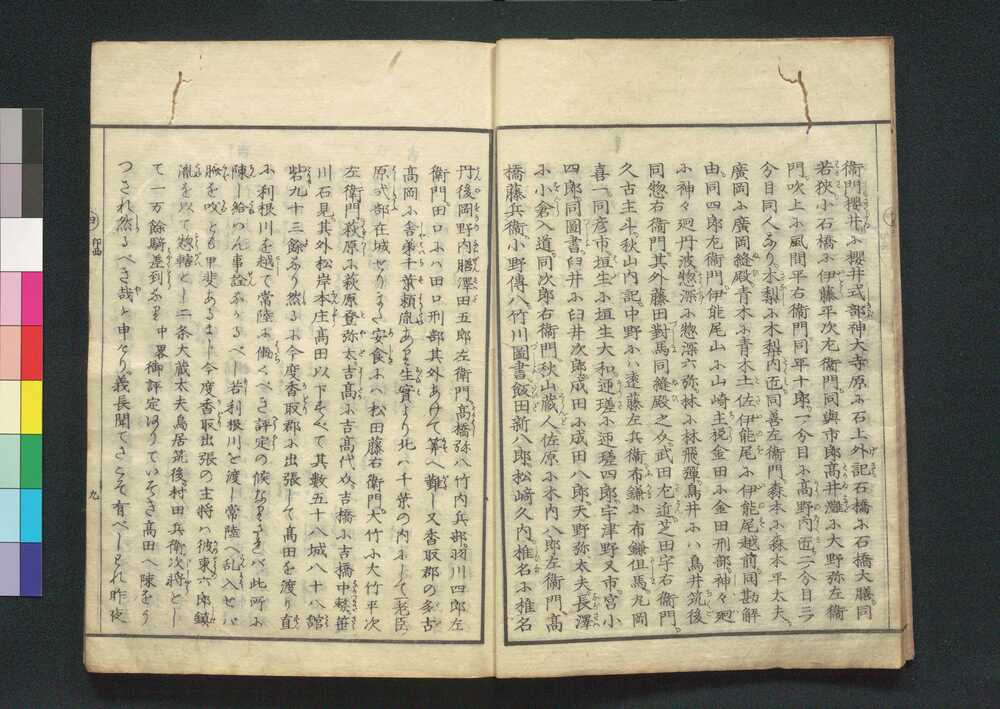 衞門櫻井ふ櫻井式部神大寺原ふ石上外記石橋ふ石橋大膳同
若狹小石橋ふ伊藤平次左衞門同與市郎高井灘ふ大野弥左衞
門吹上ふ風間平右衞門同平十郎一分目ふ高野内匠二分目三
分目同人なり木梨ふ木梨内匠同善左衞門森本ふ森本平太夫
廣岡ふ廣岡縫殿青木ふ青木土佐伊能尾ふ伊能尾越前同勘解
由同四郎左衞門伊能尾山ふ山崎主税金田ふ金田刑部神々廻
ふ神々廻丹波惣深ふ惣深六弥林ふ林飛彈鳥井ふハ鳥井筑後
同惣右衞門其外藤田對馬同縫殿之久武田左道芝田宇右衞門
久古主斗秋山内記中野ふハ遠藤左兵衞布鎌ふ布鎌但馬丸岡
喜一同彦市垣生ふ垣生大和迊瑳ふ迊瑳四郎宇津野又市宮小
四郎同圖書臼井ふ臼井次郎成田ふ成田八郎天野弥太夫長澤
ふ小倉入道同次郎右衞門秋山蔵人佐原ふ木内八郎左衞門高
橋藤兵衞小野傳八竹川圖書飯田新八郎松崎久内椎名ふ椎名
丹後岡野内膳澤田五郎左衞門高橋弥八竹内兵部羽川四郎左
衞門田口ふハ田口刑部其外あげて筭へ難し又香取郡の多古
高岡ふ舎弟千葉頼胤あり生實より北ハ千葉の内ふして老臣
原式部在城せりまた安食ふハ松田藤右衞門大竹ふ大竹平次
左衞門萩原ふ萩原登弥太吉高ふ吉高代久吉橋ふ吉橋中務笹
川石見其外松岸本庄高田以下すべて其數五十八城八十八舘
砦九十三餘なり然るふ今度香取郡ふ出張して高田を渡り直
ふ利根川を越て常陸ふ働くべき評定の候なり
陳し給つん事詮なかるべし若利根川を渡し常陸へ乱入せば
臍を咬とも甲斐あるまじ今度香取出張の主將ハ彼東六郎鎮
胤を以て惣轄とし二条大蔵太夫鳥居筑後村田兵衞次將とし
て一万餘騎差到ふり中畧御評定ありていそぎ高田へ陳をう
つされ然るべき哉と申せり義長聞てさこそ有べしとれ昨夜
九